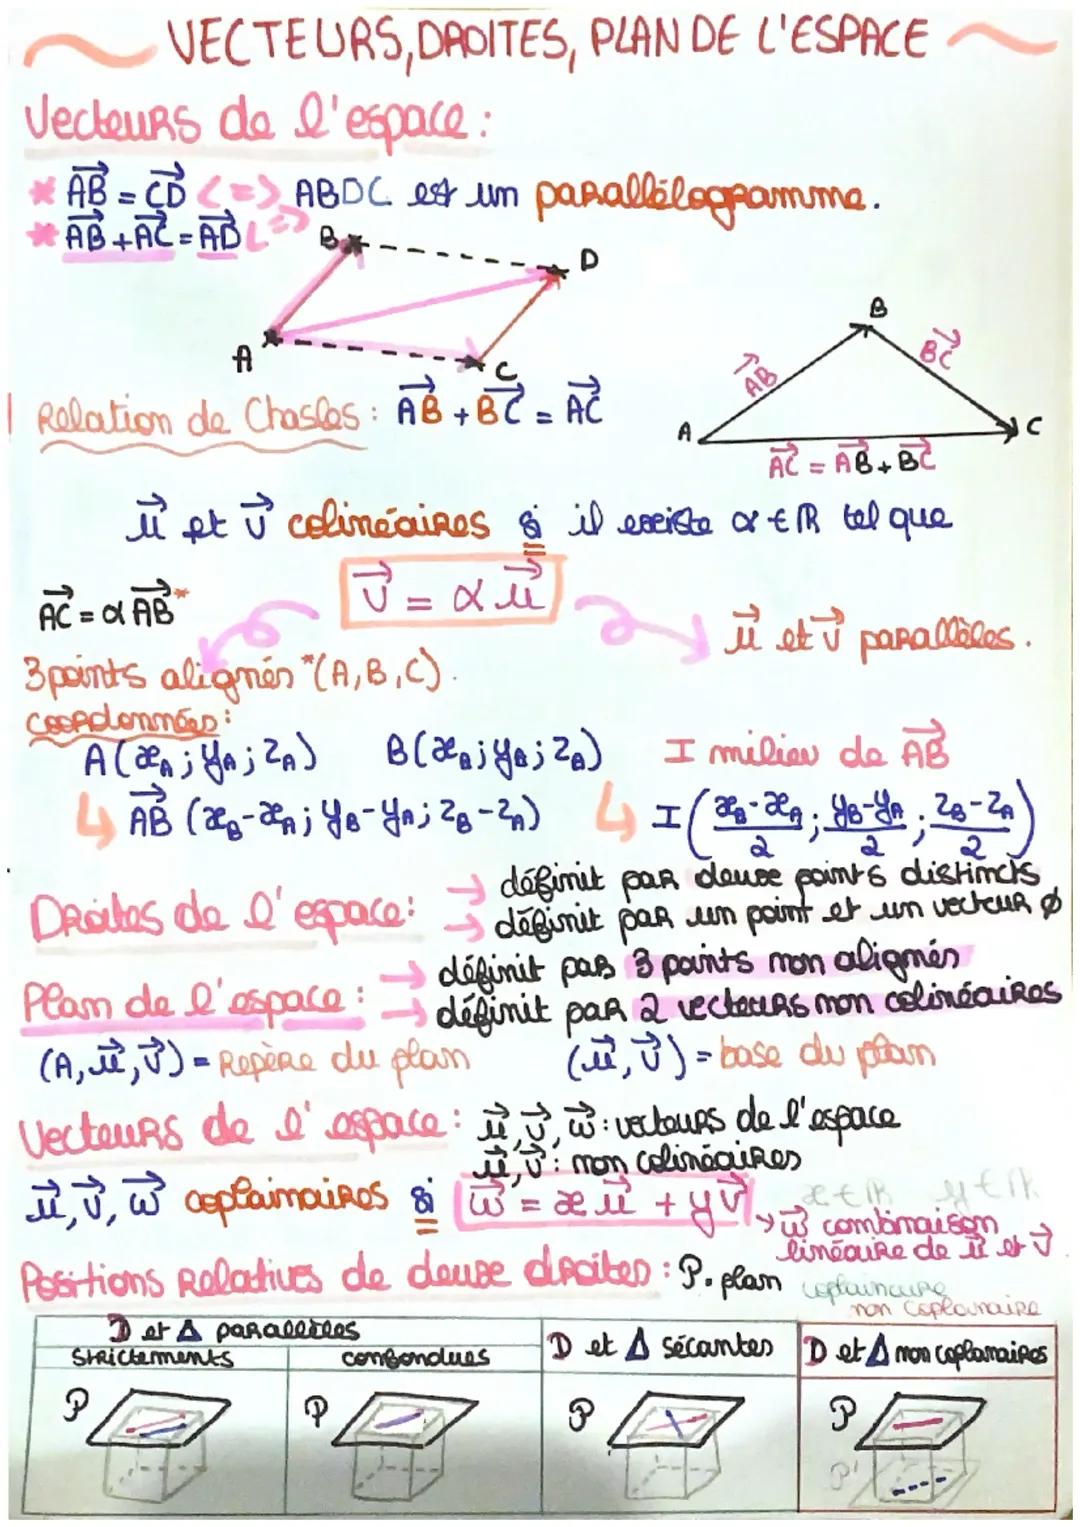 VECTEURS, DROITES, PLAN DE L'ESPACE
Vecteurs de l'espace :
* AB⃗ = CD⃗ <=> ABDC est un parallélogramme.
* AB⃗ + AC⃗ = AD⃗ <=>
B
D
A
C
Relation de Chasles : AB⃗ + BC⃗ = AC⃗
B
AB⃗
BC⃗
A
C
AC⃗ = AB⃗ + BC⃗
u⃗ et v⃗ colinéaires si il existe α ∈ ℝ tel que
v⃗ = α u⃗
AC⃗ = α AB⃗ *
u⃗ et v⃗ parallèles.
3 points alignés *(A, B, C).
coordonnées :
A (xA ; yA ; zA) B (xB ; yB ; zB) I milieu de AB⃗
↳ AB⃗ (xB-xA ; yB-yA ; zB-zA) ↳ I ( xB-xA/2 ; yB-yA/2 ; zB-zA/2 )
Droites de l'espace : → définit par deux points distincts
→ définit par un point et un vecteur ∅
Plan de l'espace : → définit par 3 points non alignés
→ définit par 2 vecteurs non colinéaires
(A, u⃗, v⃗) = Repère du plan (u⃗, v⃗) = base du plan
Vecteurs de l'espace : u⃗, v⃗, w⃗ : vecteurs de l'espace
u⃗, v⃗ : non colinéaires
u⃗, v⃗, w⃗ coplainaires si w⃗ = x u⃗ + y v⃗ x ∈ ℝ y ∈ ℝ
→ w⃗ combinaison
linéaire de u⃗ et v⃗.
Positions Relatives de deux droites : P. plan coplainaire
non coplainaire
D et Δ parallèles
strictements
confondues
D et Δ sécantes
D et Δ non coplanaires
P
P
P
P
P'